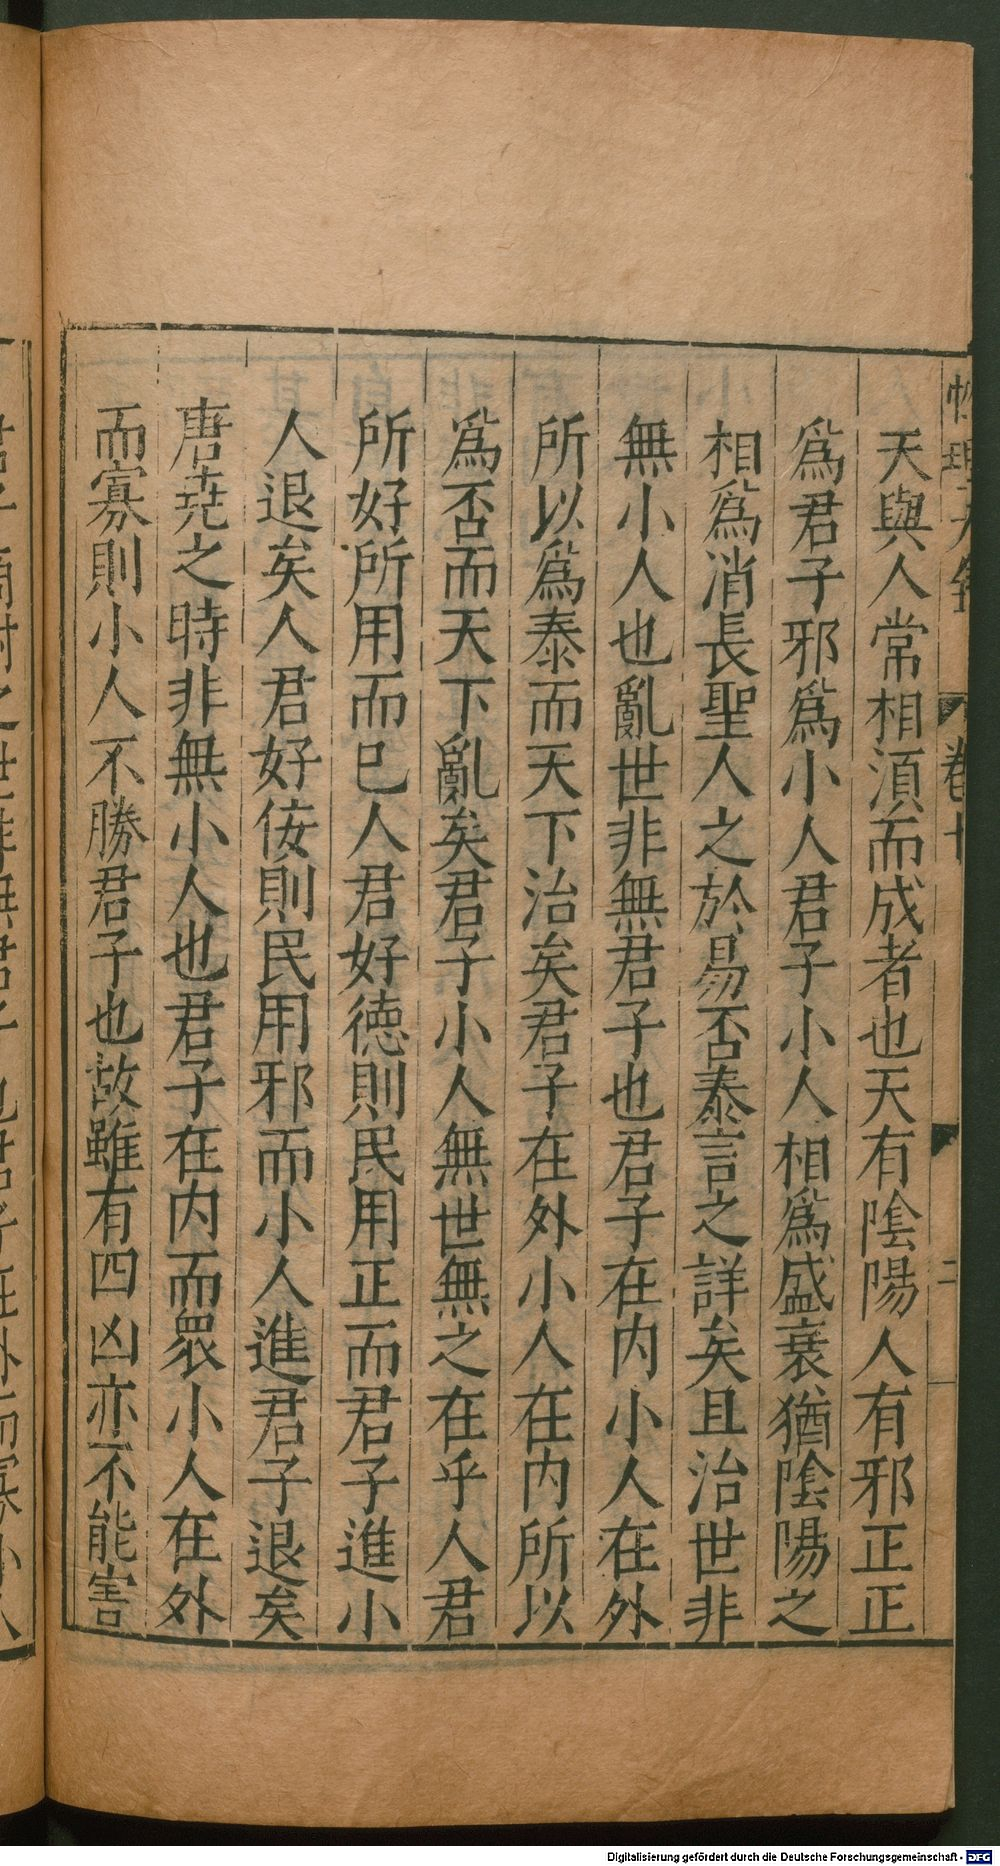 天與人常相須而成者也天有隂陽人有邪正正
爲君子邪爲小人君子小人相爲盛衰猶隂陽之
相爲消長聖人之於易否泰言之詳矣且治世非
無小人也亂世非無君子也君子在内小人在外
所以爲泰而天下治矣君子在外小人在内所以
爲否而天下亂矣君子小人無世無之在乎人君
所好所用而已人君好德則民用正而君子進小
人退矣人君好佞則民用邪而小人進君子退矣
唐堯之時非無小人也君子在内而衆小人在外
而寡則小人不勝君子也故雖有四凶亦不能害
卷十
二
Digitalisierung gefördert durch die Deutsche Forschungsgemeinschaft - DFG